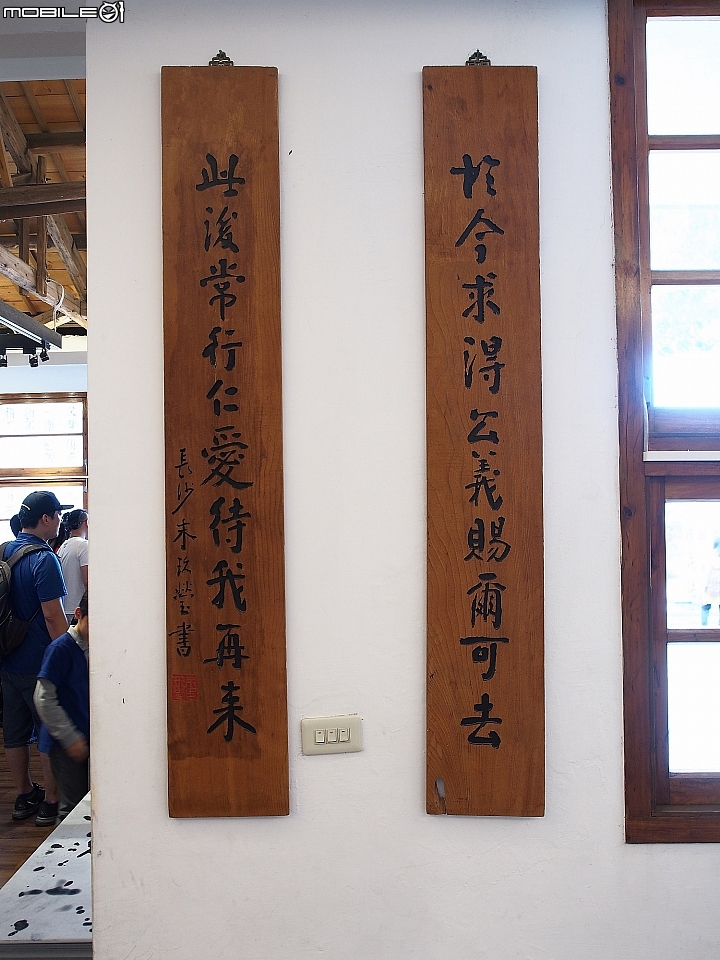 MOBILE01
於今求得公義賜爾可去
此後常行仁愛待我再来
長沙朱玖瑩書